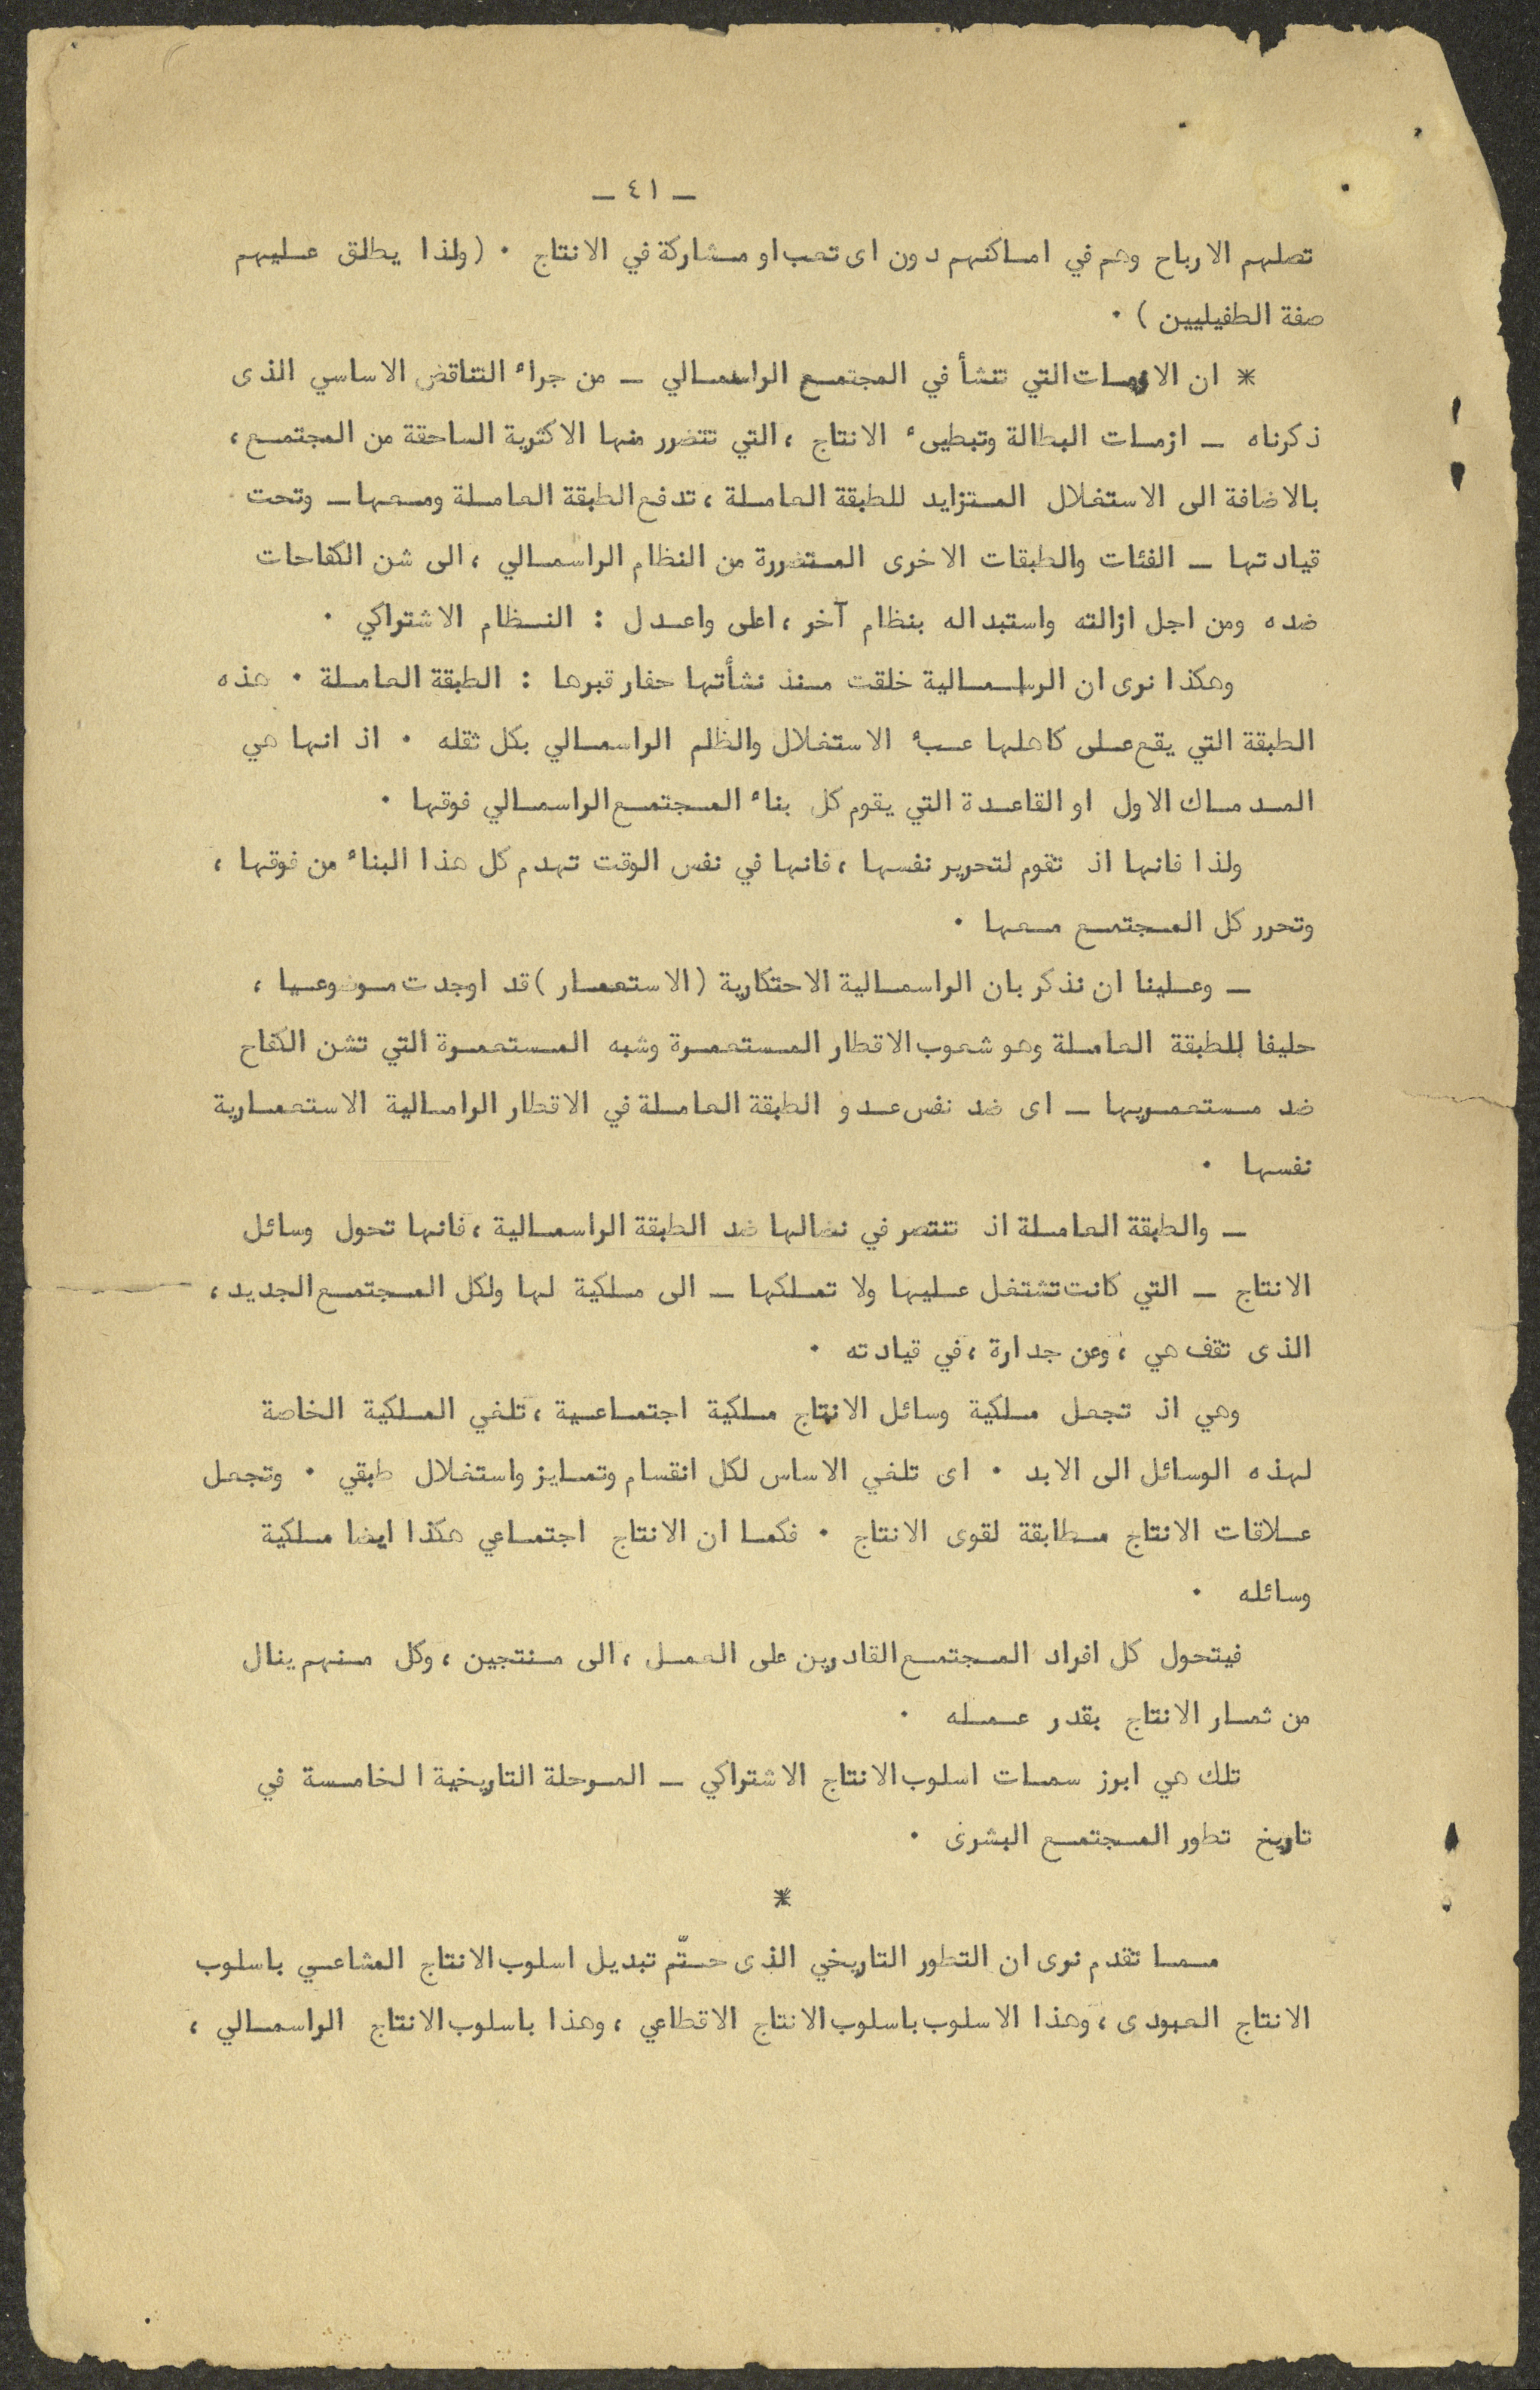 ـ ٤١ ـ
تصلهم الارباح وهم في اماكنهم دون اى تعب او مشاركة في الانتاج ٠ (ولذا يطلق عليهم
صفة الطفيليين ) ٠
* ان الازمات التي تنشأ في المجتمع الراسمالي ـ من جراء التناقض الاساسي الذى
ذكرناه ـ ازمات البطالة وتبطىء الانتاج ، التي تتضرر منها الاكثرية الساحقة من المجتمع ،
بالاضافة الى الاستغلال المتزايد للطبقة العاملة ، تدفع الطبقة العاملة ومعها ـ وتحت
قيادتها ـ الفئات والطبقات الاخرى المتضررة من النظام الراسمالي ، الى شن الكفاحات
ضده ومن اجل ازالته واستبداله بنظام آخر ، اعلى واعدل : النظام الاشتراكي ٠
وهكذا نرى ان الراسمالية خلقت منذ نشأتها حفار قبرها : الطبقة العاملة ٠ هذه
الطبقة التي يقع على كاهلها عبء الاستغلال والظلم الراسمالي بكل ثقله ٠ اذ انها هي
المدماك الاول او القاعدة التي يقوم كل بناء المجتمع الراسمالي فوقها ٠
ولذا فانها اذ تقوم لتحرير نفسها ، فانها في نفس الوقت تهدم كل هذا البناء من فوقها ،
وتحرر كل المجتمع معها ٠
ـ وعلينا ان نذكر بان الراسمالية الاحتكارية (الاستعمار) قد اوجدت موضوعيا ،
حليفا للطبقة العاملة وهو شعوب الاقطار المستعمرة وشبه المستعمرة التي تشن الكفاح
ضد مستعمريها ـ اى ضد نفس عدو الطبقة العاملة في الاقطار الرامالية الاستعمارية
نفسها ٠
ـ والطبقة العاملة اذ تنتصر في نضالها ضد الطبقة الراسمالية ، فانها تحول وسائل
الانتاج ـ التي كانت تشتغل عليها ولا تملكها ـ الى ملكية لها ولكل المجتمع الجديد ،
الذى تقف هي ، وعن جدارة ، في قيادته ٠
وهي اذ تجعل ملكية وسائل الانتاج ملكية اجتماعية ، تلغي الملكية الخاصة
لهذه الوسائل الى الابد ٠ اى تلغي الاساس لكل انقسام وتمايز واستغلال طبقي ٠ وتجعل
علاقات الانتاج مطابقة لقوى الانتاج ٠ فكما ان الانتاج اجتماعي هكذا ايضا ملكية
وسائله ٠
فيتحول كل افراد المجتمع القادرين على العمل ، الى منتجين ، وكل منهم ينال
من ثمار الانتاج بقدر عمله ٠
تلك هي ابرز سمات اسلوب الانتاج الاشتراكي ـ المرحلة التاريخية الخامسة في
تاريخ تطور المجتمع البشرى ٠
*
مما تقدم نرى ان التطور التاريخي الذى حتّم تبديل اسلوب الانتاج المشاعي باسلوب
الانتاج العبودى ، وهذا الاسلوب باسلوب الانتاج الاقطاعي ، وهذا باسلوب الانتاج الراسمالي ،